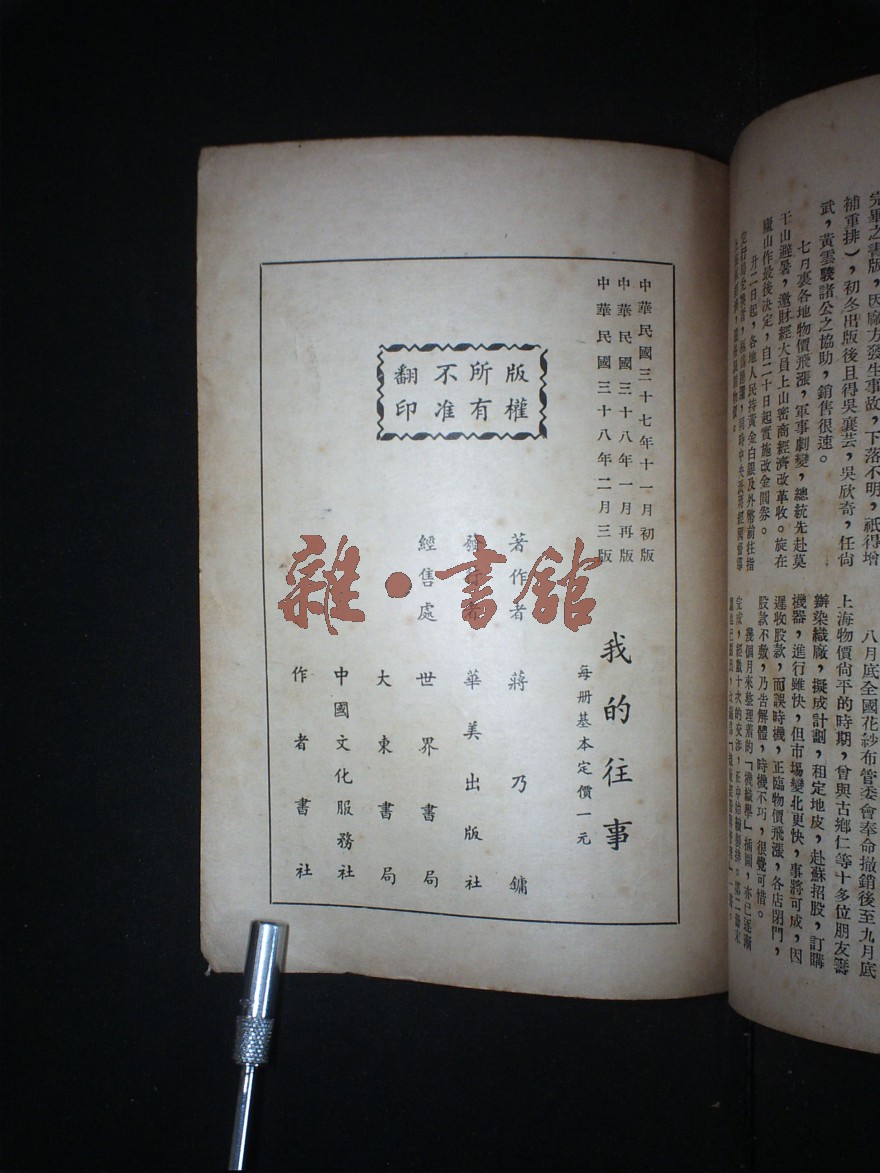 完畢之書版，因廠方發生事故，下落不明，祇得增
補重排），初冬出版後且得吳襄芸，吳欣奇，任尙
武，黃雲騤諸公之協助，銷售很速。
七月裏各地物價飛漲，軍事劇變，總統先赴莫
干山避暑，邀財經大員上山密商經濟改革收。旋在
廬山作最後決定，自二十日起實施改金圓券。
廿二日起，各地人民持黃金白銀及外幣前往指
八月底全國花紗布管委會奉命撤銷後至九月底
上海物價尙平的時期，曾與古鄉仁等十多位朋友籌
辦染織廠，擬成計劃，租定地皮，赴蘇招股，訂購
機器，進行雖快，但市場變化更快，事將可成，因
遲收股款，而誤時機，正臨物價飛漲，各店閉門，
股款不敷，乃吿解體，時機不巧，很覺可惜。
幾個月來整理舊的「機織學」插圖，亦已逐漸
中華民國三十七年十一月初版
中華民國三十八年一月再版
中華民國三十八年二月三版
版權
所有
不准
翻印
我的往事
每册基本定價一元
著作者 蔣乃鏞
發行者 華美出版社
經售處 世界書局
大東書局
中國文化服務社
作者書社
雜·書館